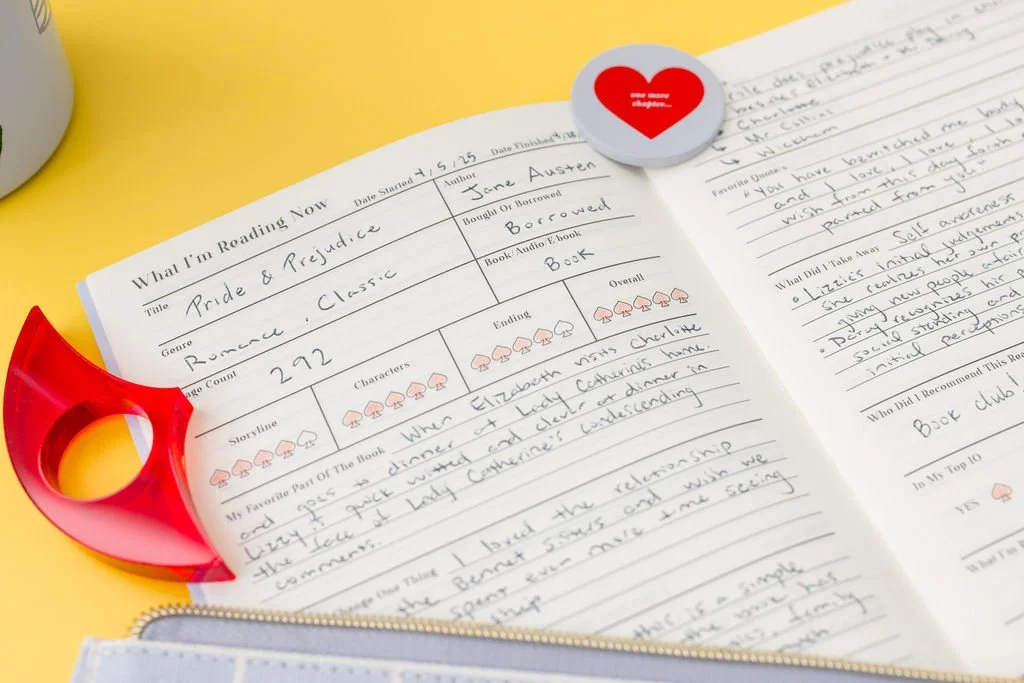 one more
chapter...
What I'm Reading Now
Date Started 4/5/25
Date Finished
Title
Pride & Prejudice
Author
Jane Austen
Bought Or Borrowed
Borrowed
Genre
Romance, Classic
Book/Audio/Ebook
Book
age Count
292
Storyline
Characters
Ending
Overall
My Favorite Part Of The Book When Elizabeth visits Charlotte
and goes to dinner at Lady Catherine's home.
Lizzy is quick witted and clever at dinner in
the face of Lady Catherine's condescending
comments.
hange One Thing I loved the relationship
the Bennet sisters and wish we
spent even more time seeing
this is a simple
the book has
family
role does prejudice play in
besides
↳ Charlotte
↳ Mr Collins
↳ Wickham
Favorite Quotes
"You have bewitched me body
and I love, I love, I lo
wish from this day forth
parted from you"
What Did I Take Away Self awareness
• Lizzie's initial judgements
she realizes her own pr
giving new people a fair
• Darcy recognizes his p
social standing and
initial perceptions
Who Did I Recommend This Rea
Book club
In My Top 10
YES
What I'm R